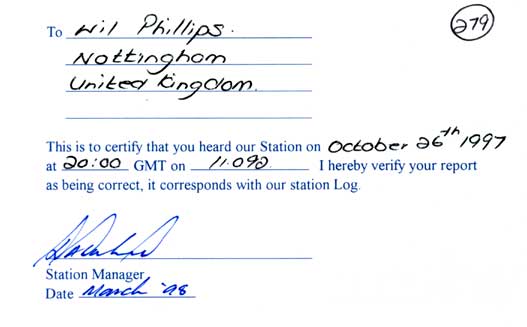 To Wil Phillips.
279
Nottingham
United Kingdom.
This is to certify that you heard our Station on October 26th 1997
at 20:00 GMT on 11.092 I hereby verify your report
as being correct, it corresponds with our station Log.
Station Manager
Date March '98